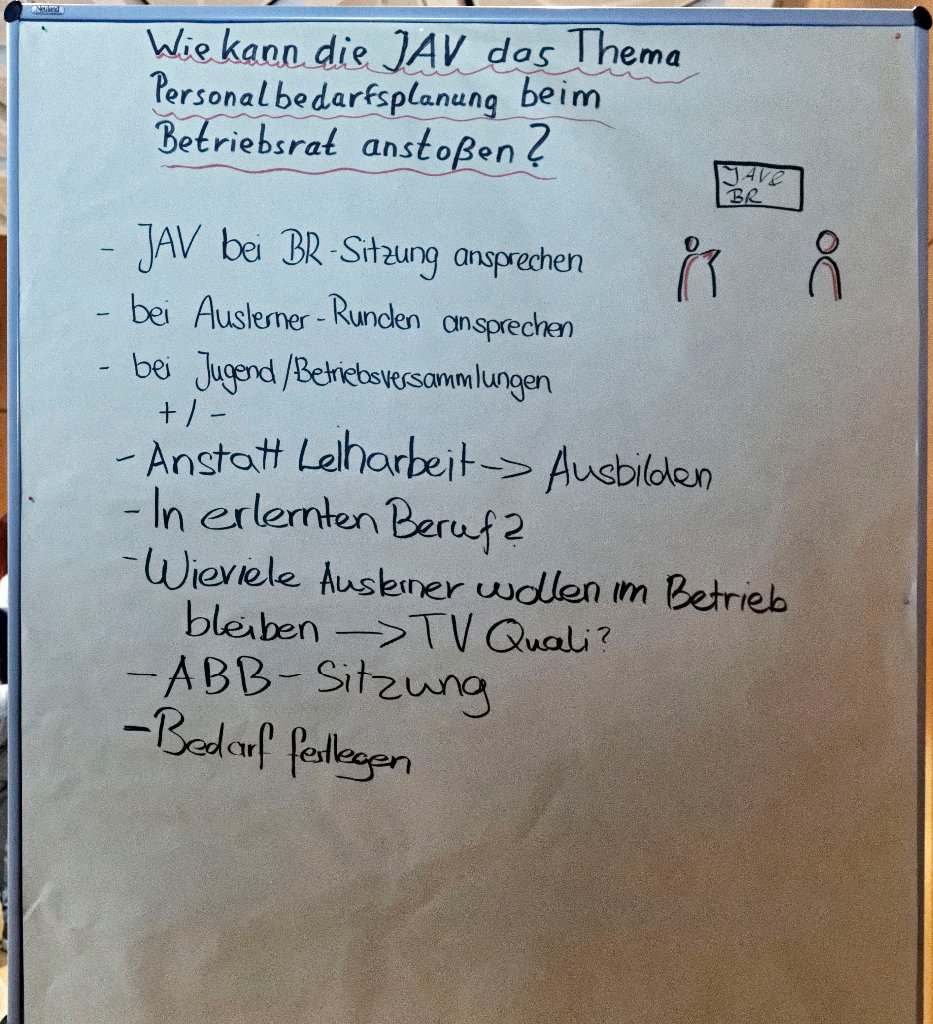 Neuland
Wie kann die JAV das Thema
Personalbedarfsplanung beim
Betriebsrat anstoßen?
JAV &
BR
- JAV bei BR-Sitzung ansprechen
- bei Auslerner-Runden ansprechen
- bei Jugend/Betriebsversammlungen
+ / -
- Anstatt Leiharbeit -> Ausbilden
- In erlernten Beruf?
- Wieviele Auslerner wollen im Betrieb
bleiben -> TV Quali?
- ABB-Sitzung
- Bedarf festlegen